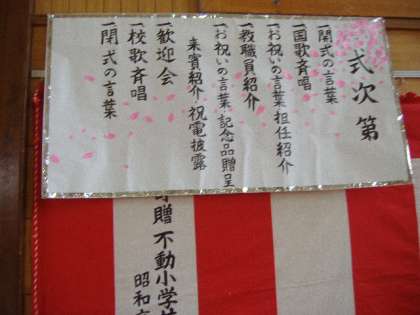 式次第
一開式の言葉
一国歌斉唱
一お祝いの言葉 担任紹介
一教職員紹介
一お祝いの言葉 記念品贈呈
来賓紹介 祝電披露
一歓迎会
一校歌斉唱
一閉式の言葉
贈 不動小学校
昭和